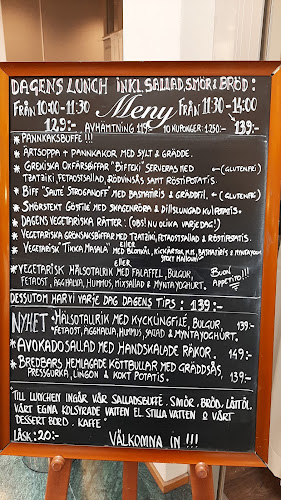 DAGENS LUNCH INKL. SALLAD, SMÖR & BRÖD:
FRÅN 10:00-11:30 Meny FRÅN 11:30-14:00
129:- AVHÄMTNING 119:- 10 KUPONGER: 1.250:- 139:-
* PANNKAKSBUFFE !!!
* ÄRTSOPPA + PANNKAKOR MED SYLT & GRÄDDE.
* GREKISKA OXFÄRSBIFFAR "BIFTEKI" SERVERAS MED ← (GLUTENFRI)
TZATZIKI, FETAOSTSALLAD, RÖDVINSÅS SAMT RÖSTIPOTATIS.
* BIFF "SAUTÉ STROGANOFF" MED BASMATIRIS & GRÄDDFIL. ← (GLUTENFRI)
* SMÖRSTEKT GÖSFILÉ MED SKAGENRÖRA & DILLSLUNGAD KULPOTATIS.
* DAGENS VEGETARISKA RÄTTER: (OBS! NU OLIKA VARJE DAG!)
* VEGETARISKA GRÖNSAKSBIFFAR MED TZATZIKI, FETAOSTSALLAD & RÖSTIPOTATIS.
ELLER
* VEGETARISK "TIKKA MASALA" MED BLOMKÅL, KICKÄRTOR, M.M., BASMATIRIS & MYNTAYOGHURT
ELLER
* VEGETARISK HÄLSOTALRIK MED FALAFFEL, BULGUR,
FETAOST, ÄGGHALVA, HUMMUS, MIXSALLAD & MYNTAYOGHURT.
BUON APPETITO!!!
DESSUTOM HAR VI VARJE DAG DAGENS TIPS: 139:-
NYHET * HÄLSOTALRIK MED KYCKLINGFILÉ, BULGUR, 139:-
FETAOST, ÄGGHALVA, HUMMUS, SALLAD & MYNTAYOGHURT.
* AVOKADOSALLAD MED HANDSKALADE RÄKOR. 149:-
* BREDBARS HEMLAGADE KÖTTBULLAR MED GRÄDDSÅS,
PRESSGURKA, LINGON & KOKT POTATIS. 139:-
*TILL LUNCHEN INGÅR VÅR SALLADSBUFFÉ. SMÖR. BRÖD. LÄTTÖL.
VÅRT EGNA KOLSYRADE VATTEN EL STILLA VATTEN & VÅRT
DESSERT BORD. KAFFE"
LÄSK: 20:- VÄLKOMNA IN !!!